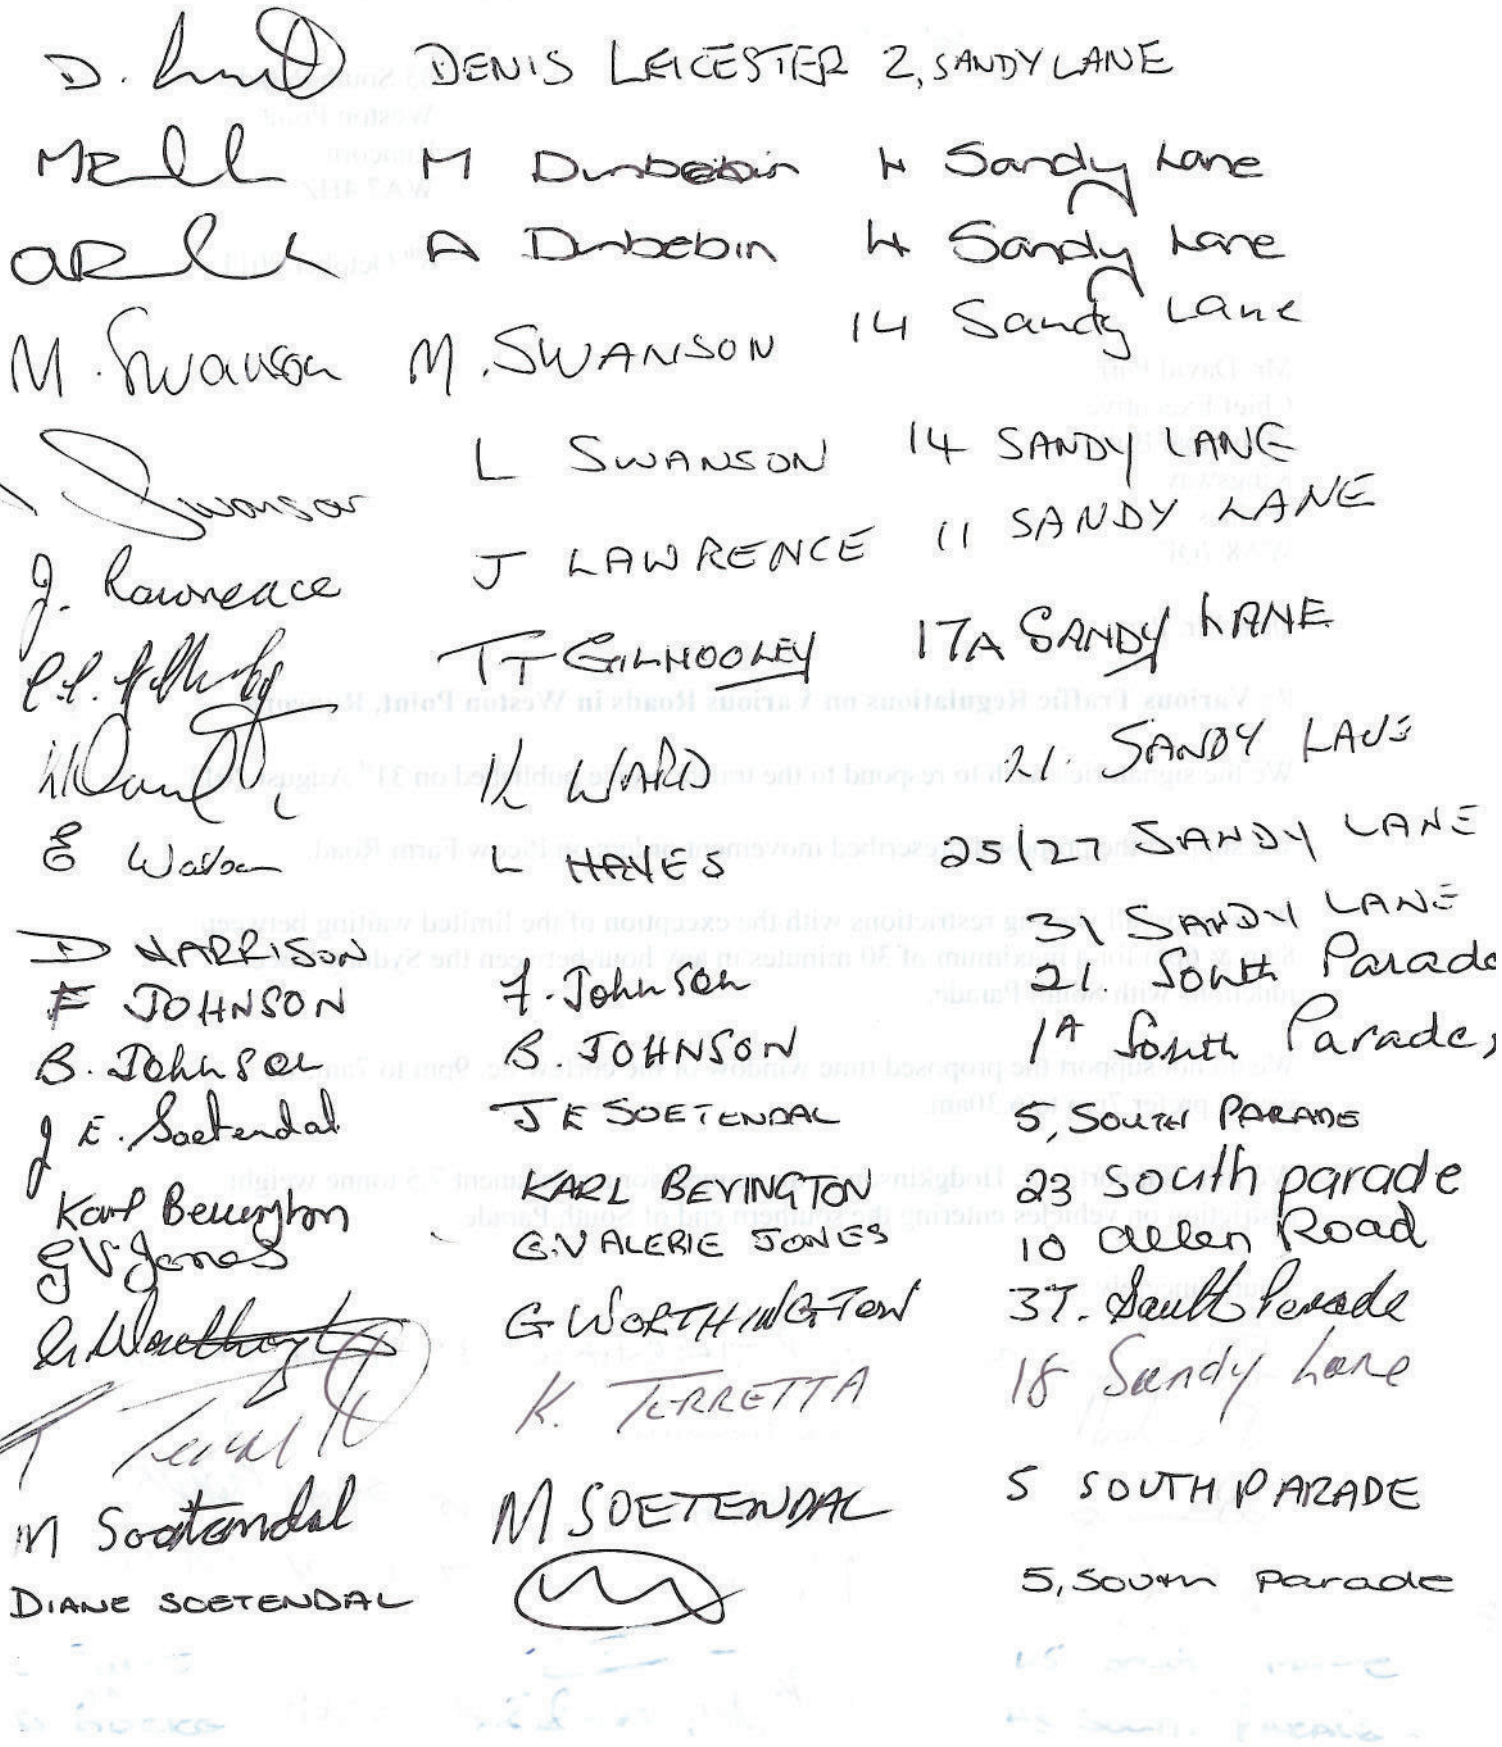 D. DENIS LEICESTER 2, SANDY LANE
M Dunbebin 4 Sandy Lane
A Dunbebin 4 Sandy Lane
M. Swanson M. SWANSON 14 Sandy Lane
Swanson L SWANSON 14 SANDY LANE
J. Lawrence J LAWRENCE 11 SANDY LANE
GILHOOLEY 17A SANDY LANE
K WARD 21. SANDY LANE
E L HAYES 25/27 SANDY LANE
D HARRISON 31 SANDY LANE
F JOHNSON F. Johnson 21. South Parade
B. Johnson B. JOHNSON 1A South Parade,
J E. Soetendal J E SOETENDAL 5, SOUTH PARADE
Karl Bevington KARL BEVINGTON 23 South parade
G V Jones G.VALERIE JONES 10 Allen Road
G. Worthington G WORTHINGTON 37. South Parade
K. TERRETTA 18 Sandy Lane
M Soetendal M SOETENDAL 5 SOUTH PARADE
DIANE SOETENDAL 5, South Parade